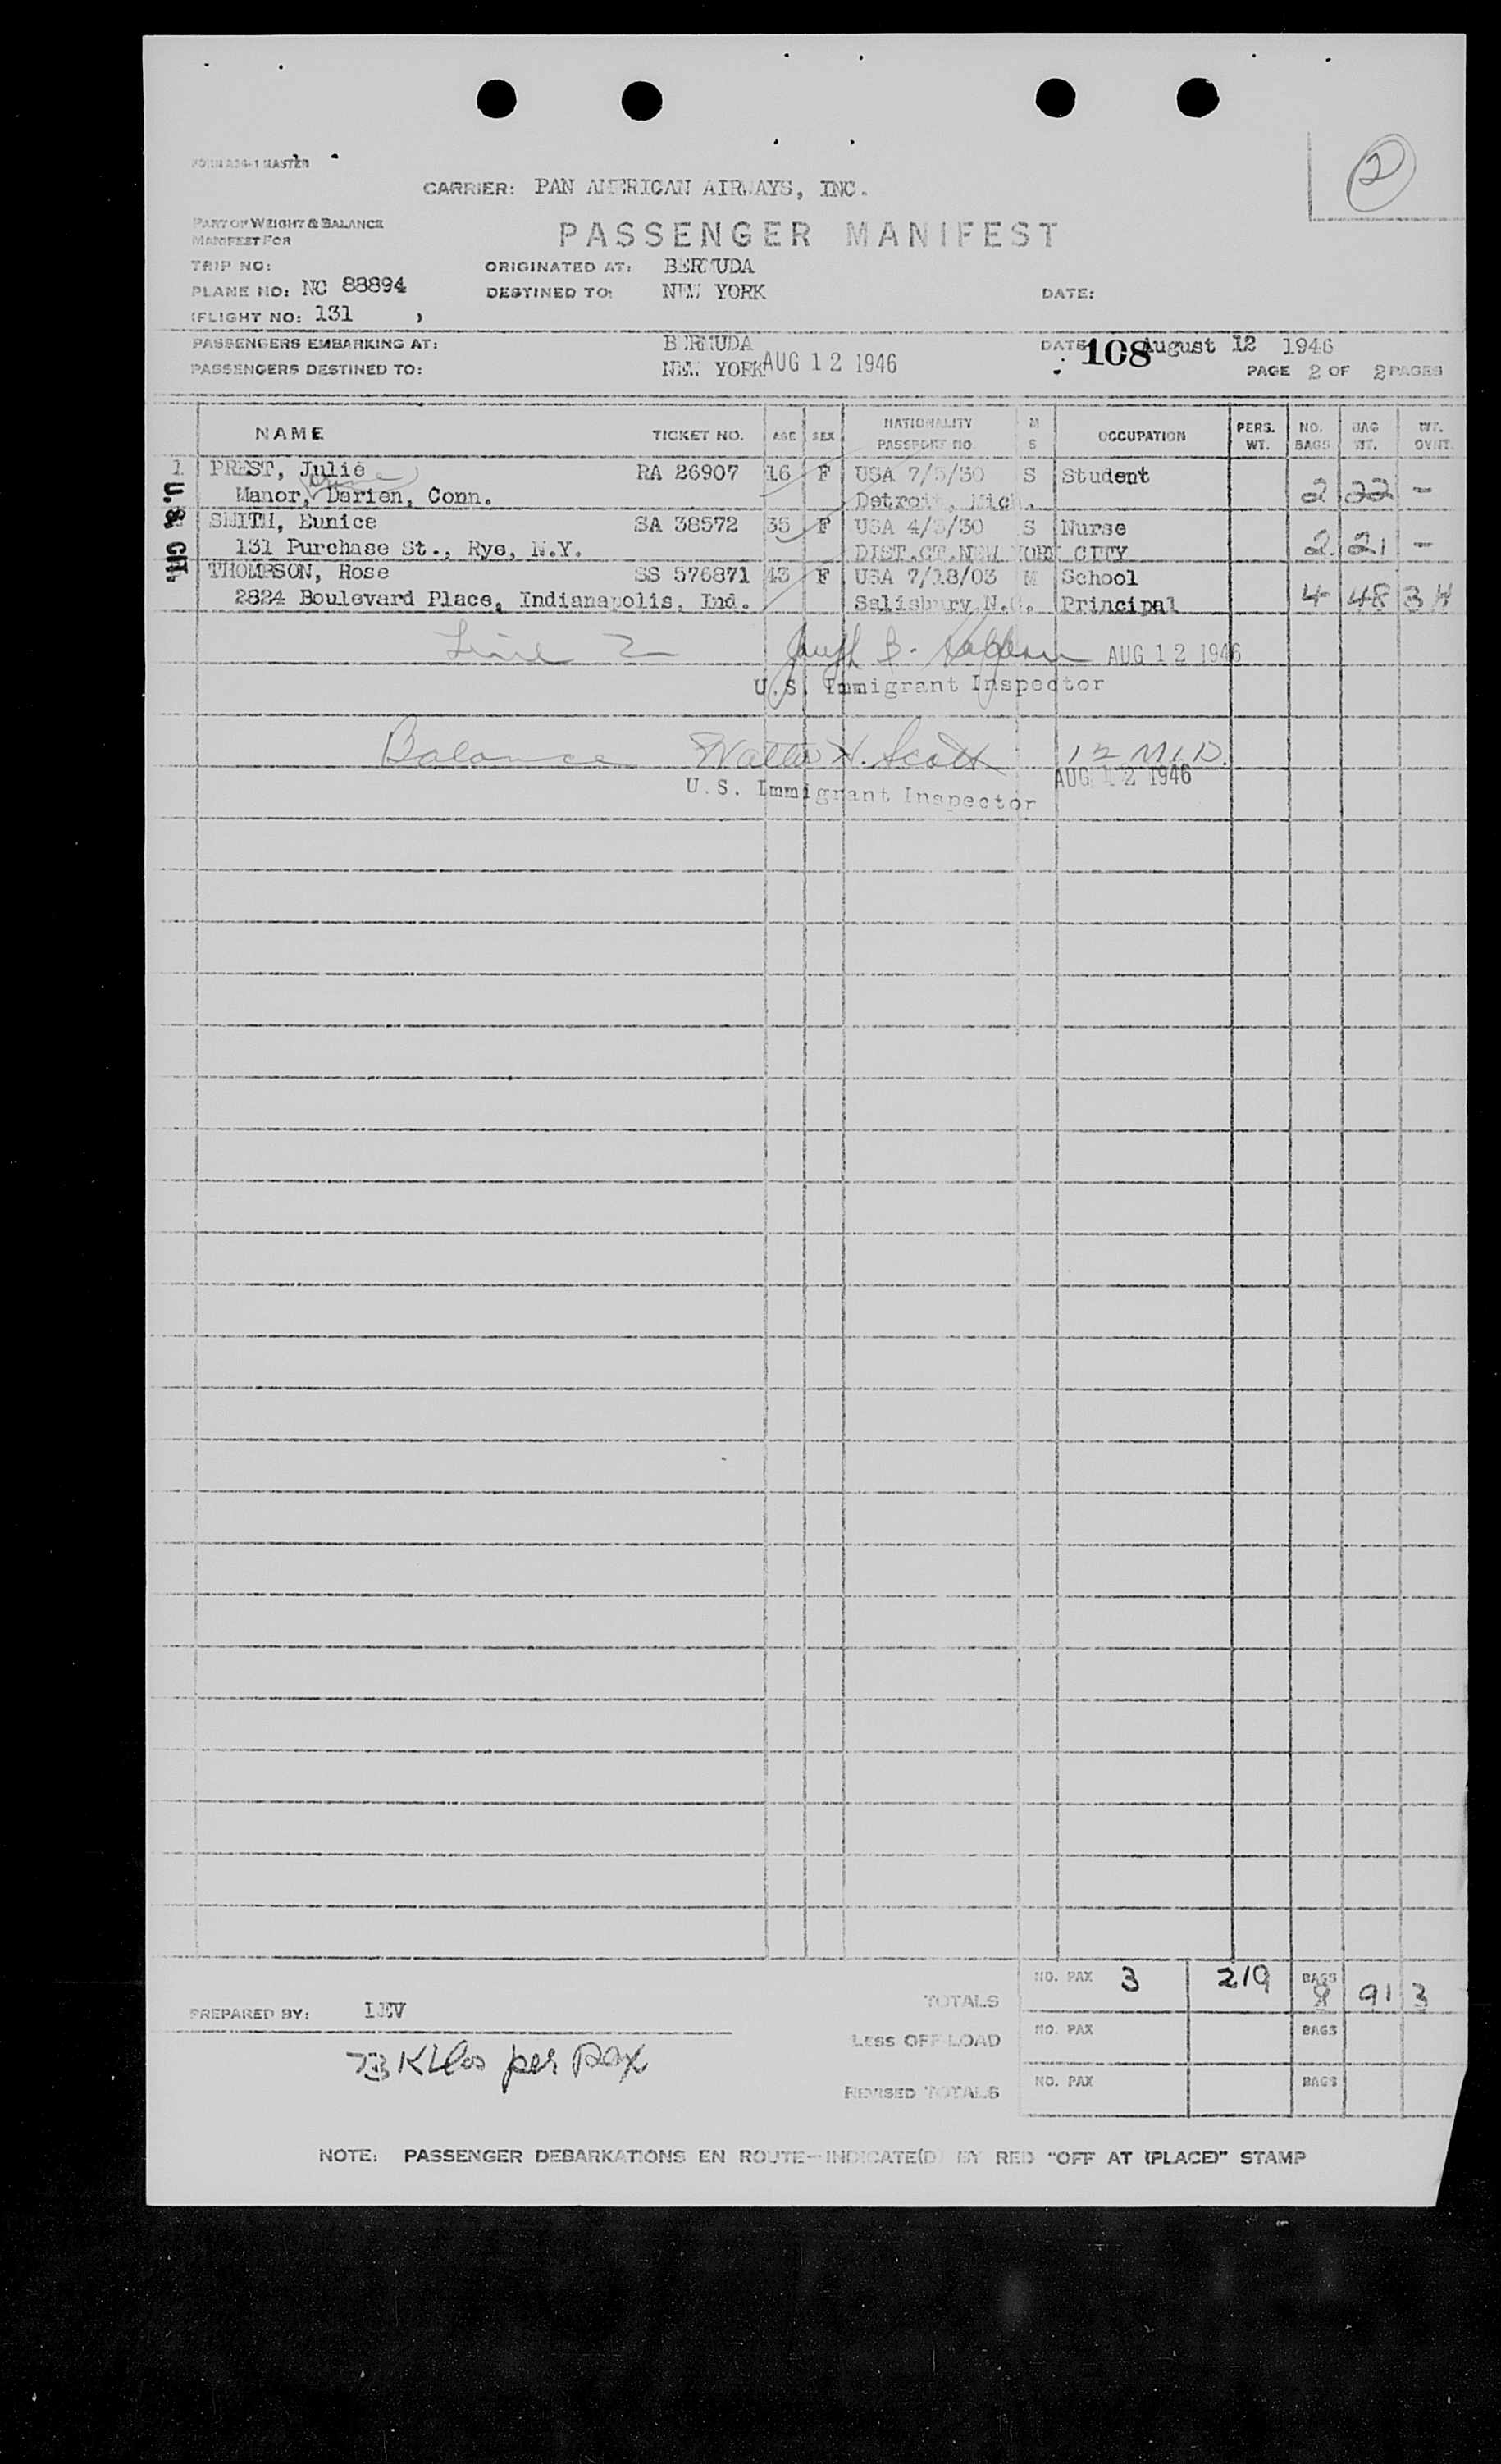 FORM 234-1 MASTER
2
CARRIER: PAN AMERICAN AIRWAYS, INC.
PART OF WEIGHT & BALANCE
MANIFEST FOR
PASSENGER MANIFEST
TRIP NO: ORIGINATED AT: BERMUDA
PLANE NO: NC 88894 DESTINED TO: NEW YORK DATE:
(FLIGHT NO: 131 )
PASSENGERS EMBARKING AT: BERMUDA DATE: 108 August 12 1946
PASSENGERS DESTINED TO: NEW YORK AUG 12 1946 PAGE 2 OF 2 PAGES
NAME TICKET NO. AGE SEX NATIONALITY PASSPORT NO. M S OCCUPATION PERS. WT. NO. BAGS BAG WT. WT. OVWT.
U.S CIT.
1 PREST, Julie RA 26907 16 F USA 7/5/30 S Student 2 22 -
Manor, Darien, Conn. Detroit, Mich.
SMITH, Eunice SA 38572 35 F USA 4/5/30 S Nurse 2 21 -
131 Purchase St., Rye, N.Y. DIST.CT.NEW YORK CITY
THOMPSON, Rose SS 576871 43 F USA 7/18/03 M School 4 48 3
2824 Boulevard Place, Indianapolis, Ind. Salisbury N.C. Principal
Line 2 Joseph B. AUG 12 1946
U.S. Immigrant Inspector
Balance Walter H. Scott 12 MID.
U.S. Immigrant Inspector AUG 12 1946
TOTALS NO. PAX 3 219 BAGS 8 91 3
PREPARED BY: LEV
LESS OFF-LOAD NO. PAX BAGS
73 Kilos per pax
REVISED TOTALS NO. PAX BAGS
NOTE: PASSENGER DEBARKATIONS EN ROUTE—INDICATE(D) BY RED "OFF AT (PLACE)" STAMP